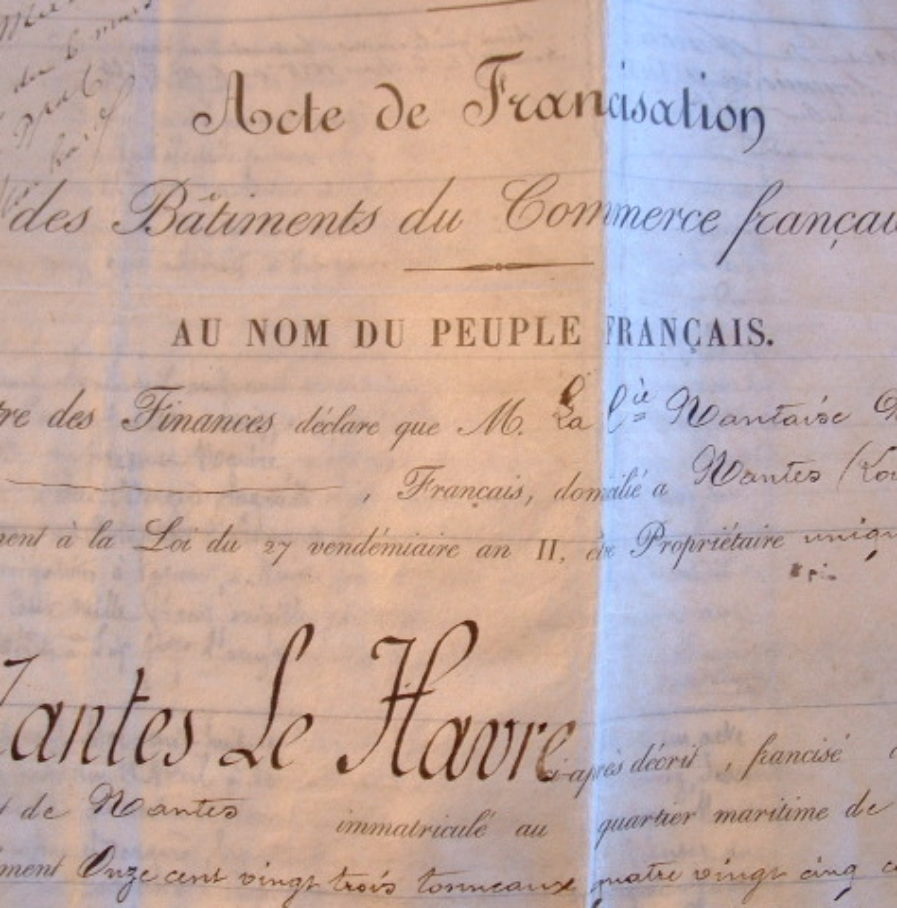 du 6 mars
Acte de Francisation
des Bâtiments du Commerce françai
AU NOM DU PEUPLE FRANÇAIS.
re des Finances déclare que M. La Cie Nantaise
, Français, domicilié à Nantes (Loi
ment à la Loi du 27 vendémiaire an II, être Propriétaire uniqu
antes Le Havre ci-après décrit, francisé
t de Nantes immatriculé au quartier maritime de
ment Onze cent vingt trois tonneaux quatre vingt cinq c